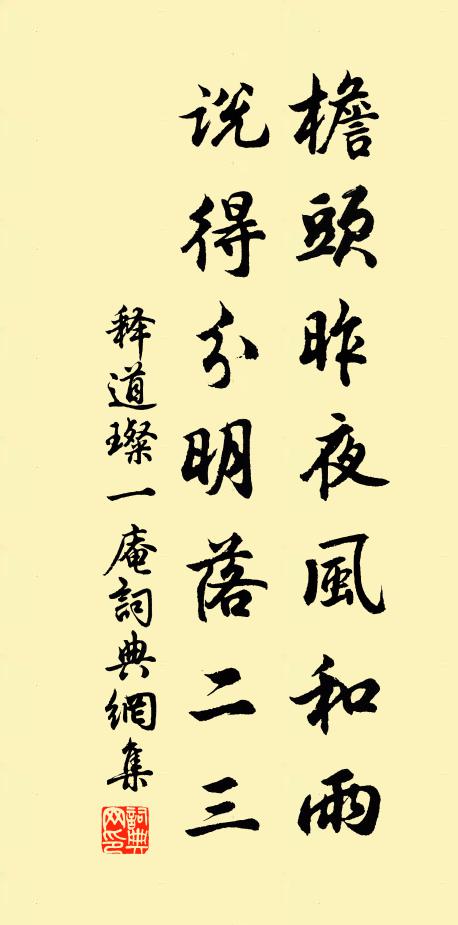 檐頭昨夜風和雨
説得分明落二三
释道璨一庵詞典網集
詞典网印